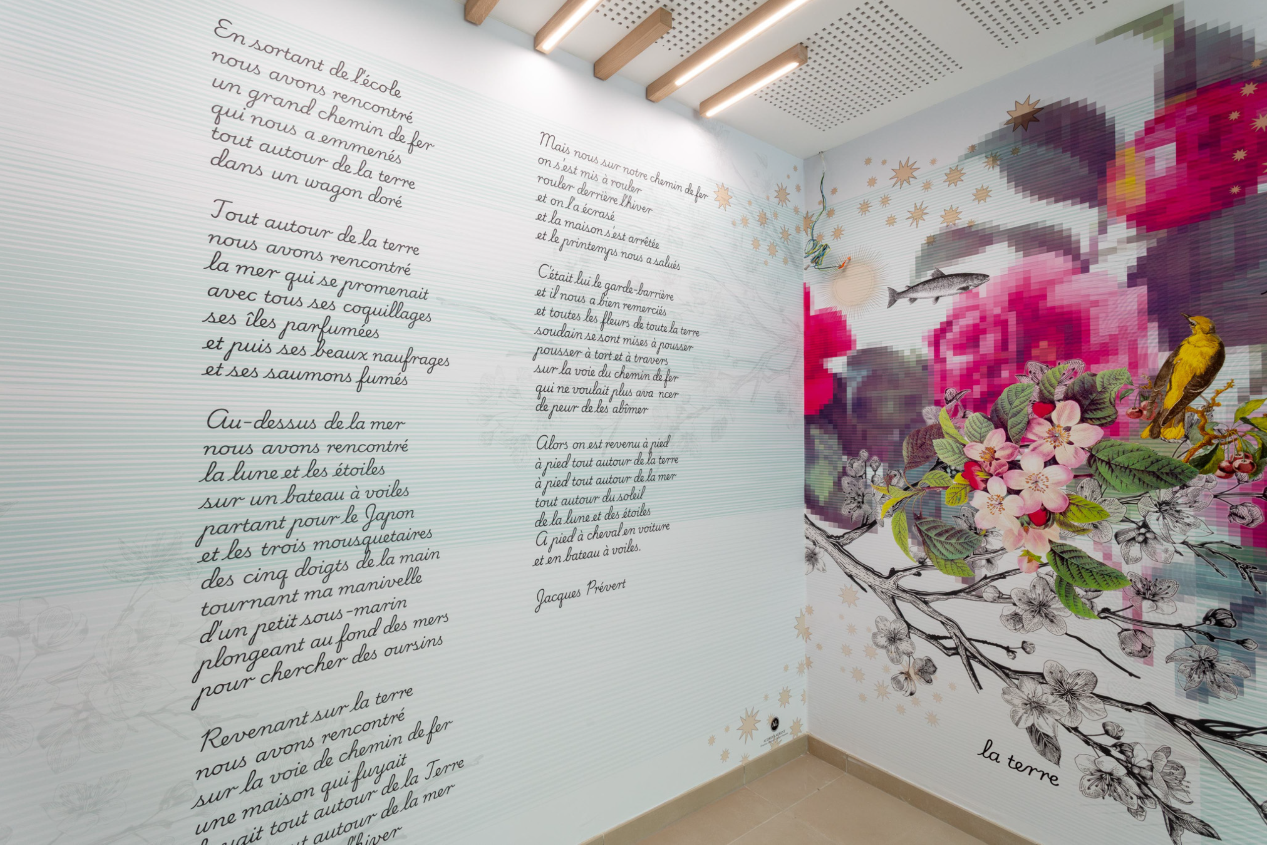 En sortant de l'école
nous avons rencontré
un grand chemin de fer
qui nous a emmenés
tout autour de la terre
dans un wagon doré
Tout autour de la terre
nous avons rencontré
la mer qui se promenait
avec tous ses coquillages
ses îles parfumées
et puis ses beaux naufrages
et ses saumons fumés
Au-dessus de la mer
nous avons rencontré
la lune et les étoiles
sur un bateau à voiles
partant pour le Japon
et les trois mousquetaires
des cinq doigts de la main
tournant ma manivelle
d'un petit sous-marin
plongeant au fond des mers
pour chercher des oursins
Revenant sur la terre
nous avons rencontré
sur la voie de chemin de fer
une maison qui fuyait
tout autour de la Terre
autour de la mer
l'hiver
Mais nous sur notre chemin de fer
on s'est mis à rouler
rouler derrière l'hiver
et on l'a écrasé
et la maison s'est arrêtée
et le printemps nous a salués
C'était lui le garde-barrière
et il nous a bien remerciés
et toutes les fleurs de toute la terre
soudain se sont mises à pousser
pousser à tort et à travers
sur la voie du chemin de fer
qui ne voulait plus ava ncer
de peur de les abîmer
Alors on est revenu à pied
à pied tout autour de la terre
à pied tout autour de la mer
tout autour du soleil
de la lune et des étoiles
A pied à cheval en voiture
et en bateau à voiles.
Jacques Prévert
la terre